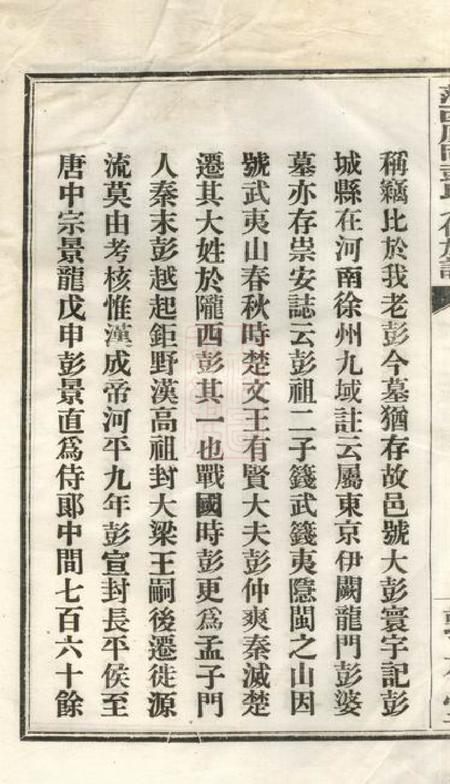 稱竊比於我老彭今墓猶存故邑號大彭寰宇記彭
城縣在河南徐州九域註云屬東京伊闕龍門彭婆
墓亦存崇安誌云彭祖二子籛武籛夷隱閩之山因
號武夷山春秋時楚文王有賢大夫彭仲爽秦滅楚
遷其大姓於隴西彭其一也戰國時彭更爲孟子門
人秦末彭越起鉅野漢高祖封大梁王嗣後遷徙源
流莫由考核惟漢成帝河平九年彭宣封長平侯至
唐中宗景龍戊申彭景直爲侍郞中間七百六十餘